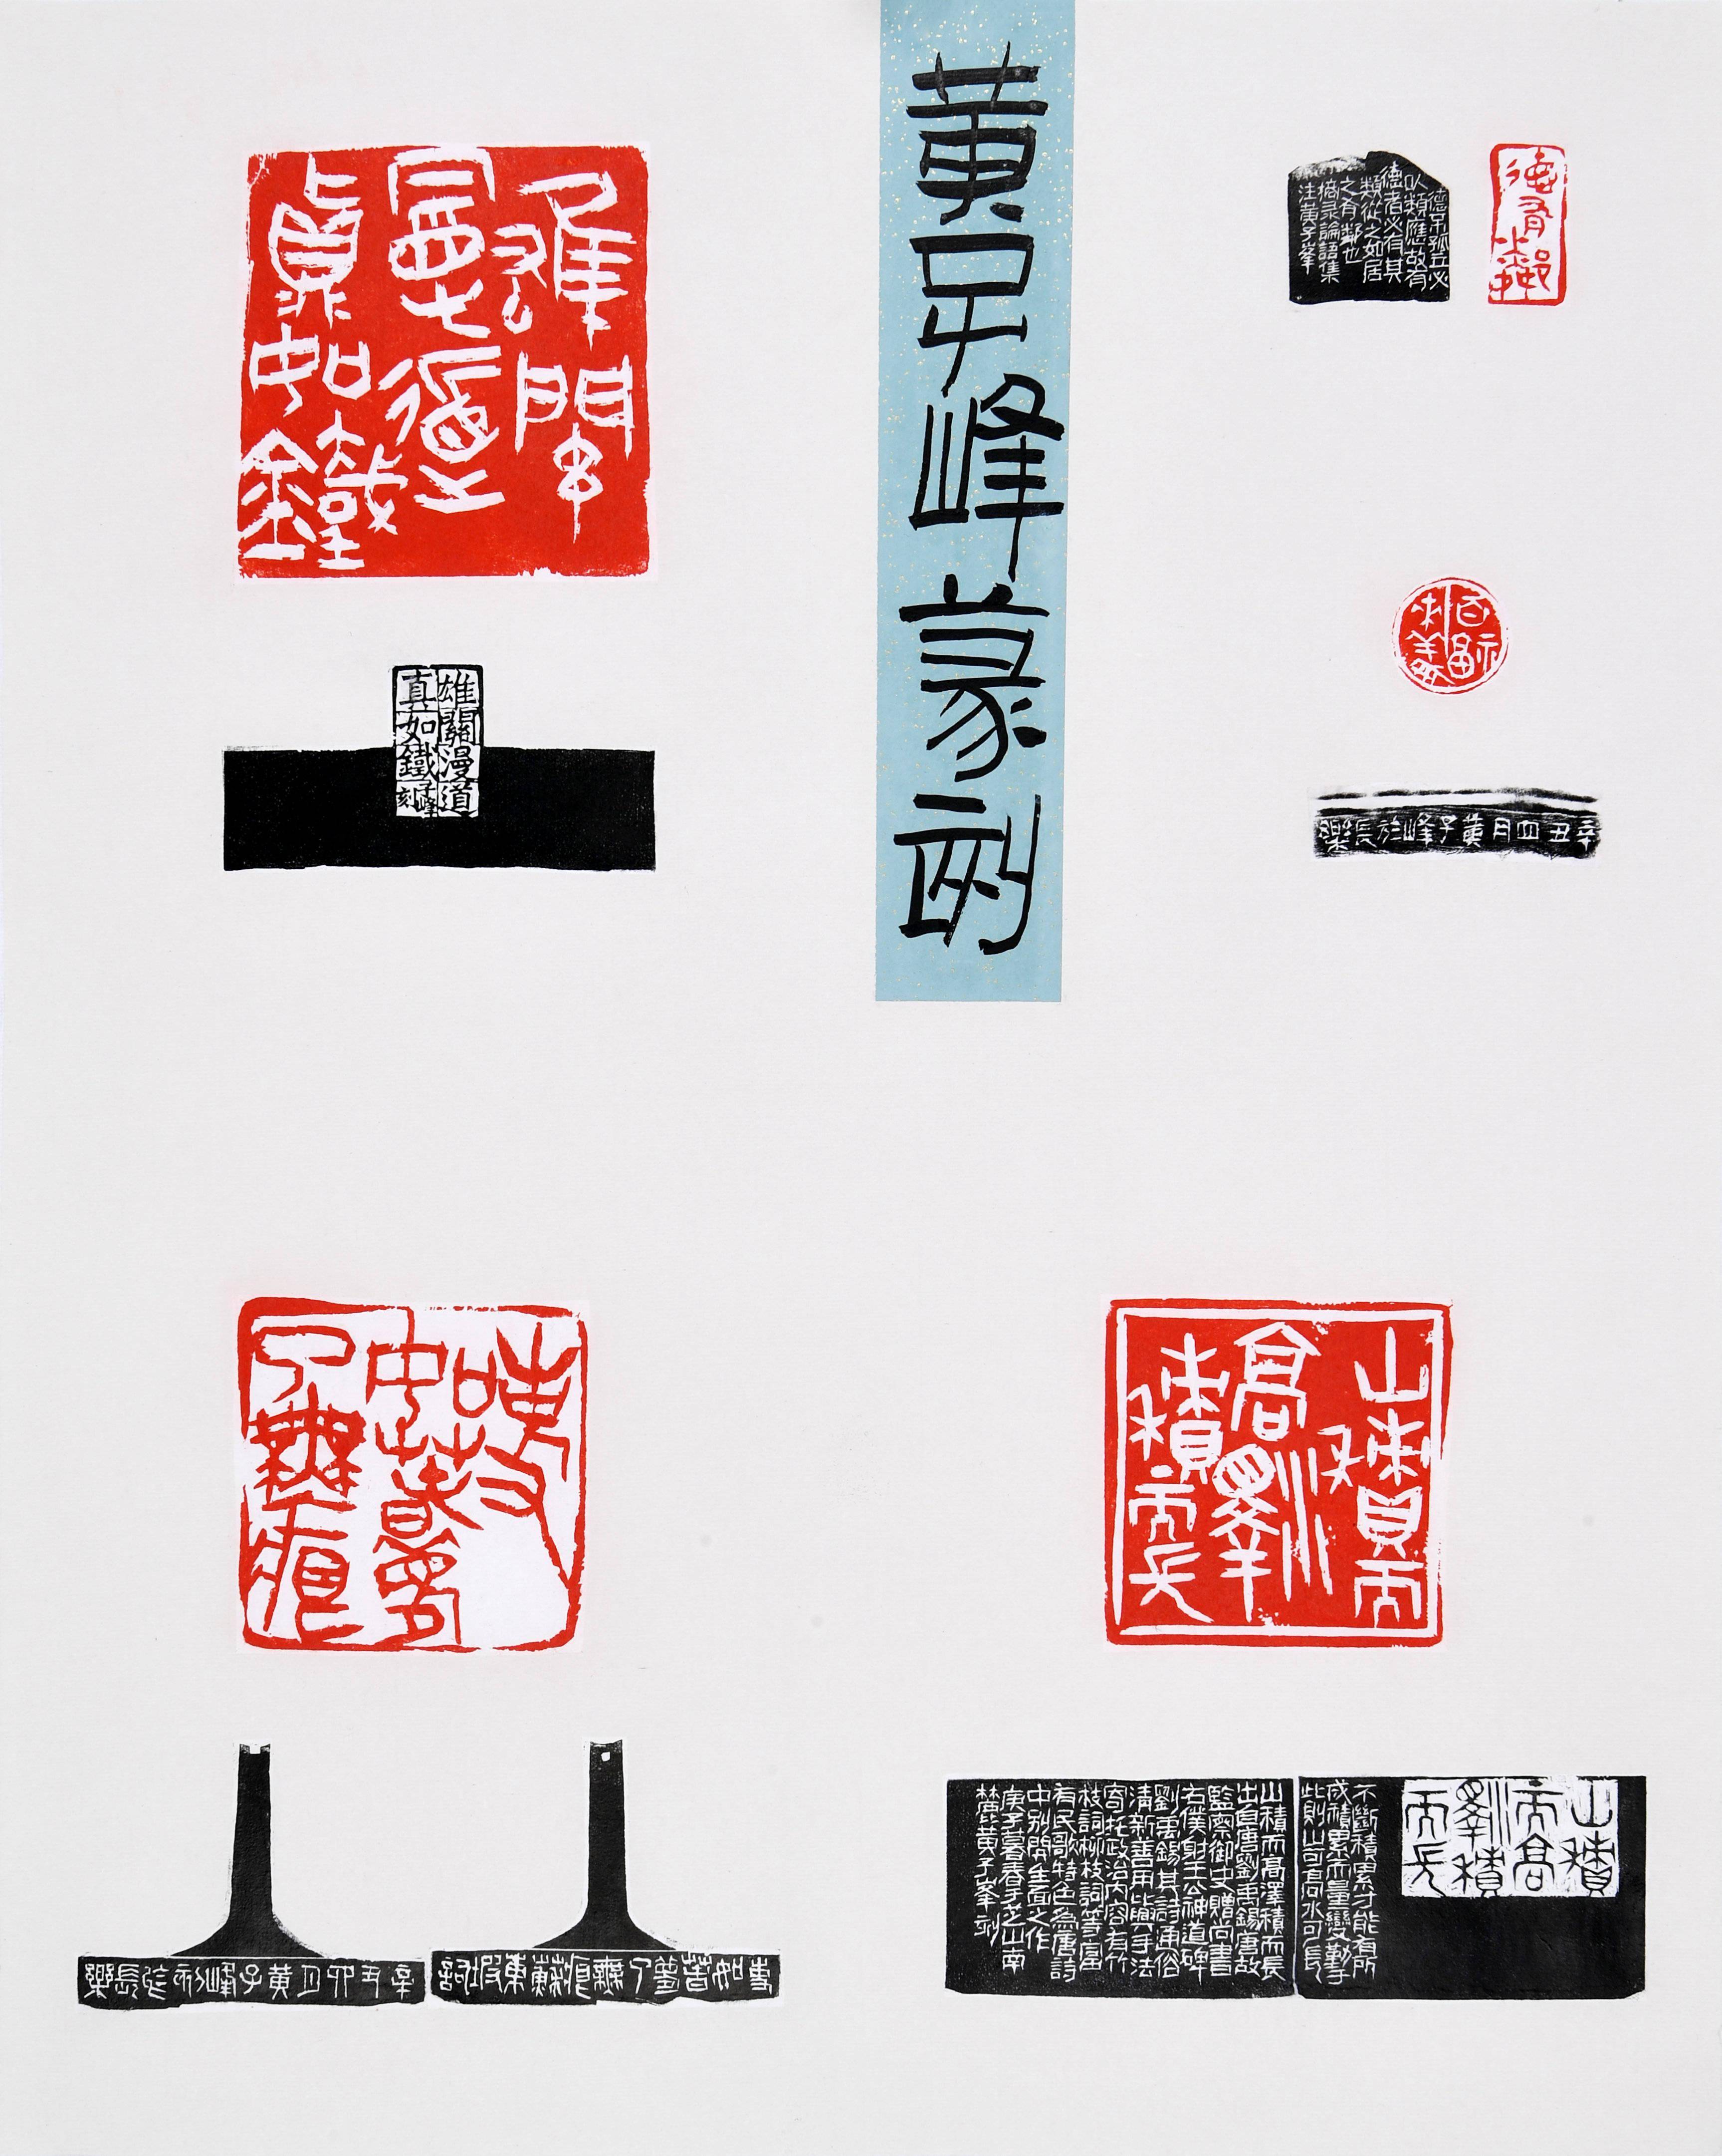 黄子峰篆刻
德有鄰
德不孤立必
以類應故有
德者必有其
類從之如居
之有鄰也
撘录論語集
注黄子峯
百福
利美
辛丑四月黄子峰於長樂
雄關
漫道
真如鐵
雄關漫道
真如鐵子峰刻
事
如春夢
了無痕
事如春夢了無痕蘇東坡詞
辛丑卯月黄子峰刻於長樂
山積而
高澤
積而長
山積
而高
澤積
而長
不斷積累才能有所
成積累而量變勤于
此則山可高水可長
山積而高澤積而長
出自唐劉禹錫唐故
監察御史贈尚書
右僕射王公神道碑
劉禹錫其詩通俗
清新善用比興手法
寄托政治内容有竹
枝詞柳枝詞等富
有民歌特色為唐詩
中别開生面之作
庚子暮春于芝山南
麓黄子峯刻